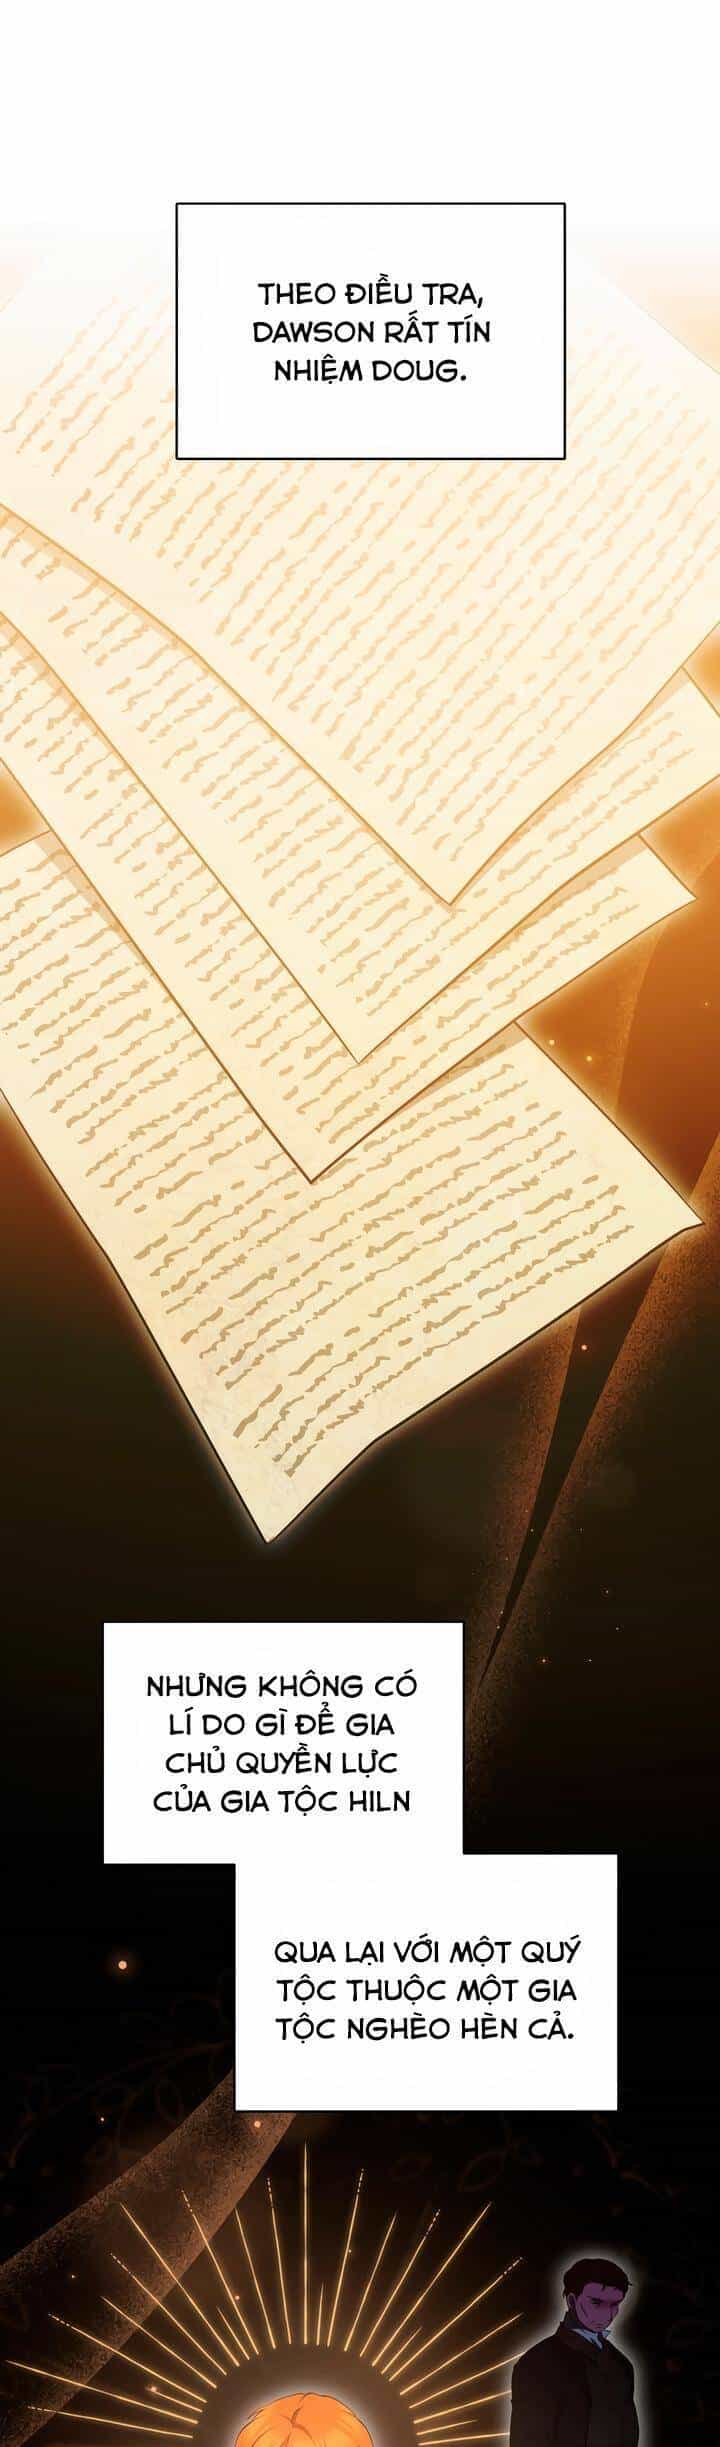 THEO ĐIỀU TRA,
DAWSON RẤT TÍN
NHIỆM DOUG.
NHƯNG KHÔNG CÓ
LÍ DO GÌ ĐỂ GIA
CHỦ QUYỀN LỰC
CỦA GIA TỘC HILN
QUA LẠI VỚI MỘT QUÝ
TỘC THUỘC MỘT GIA
TỘC NGHÈO HÈN CẢ.